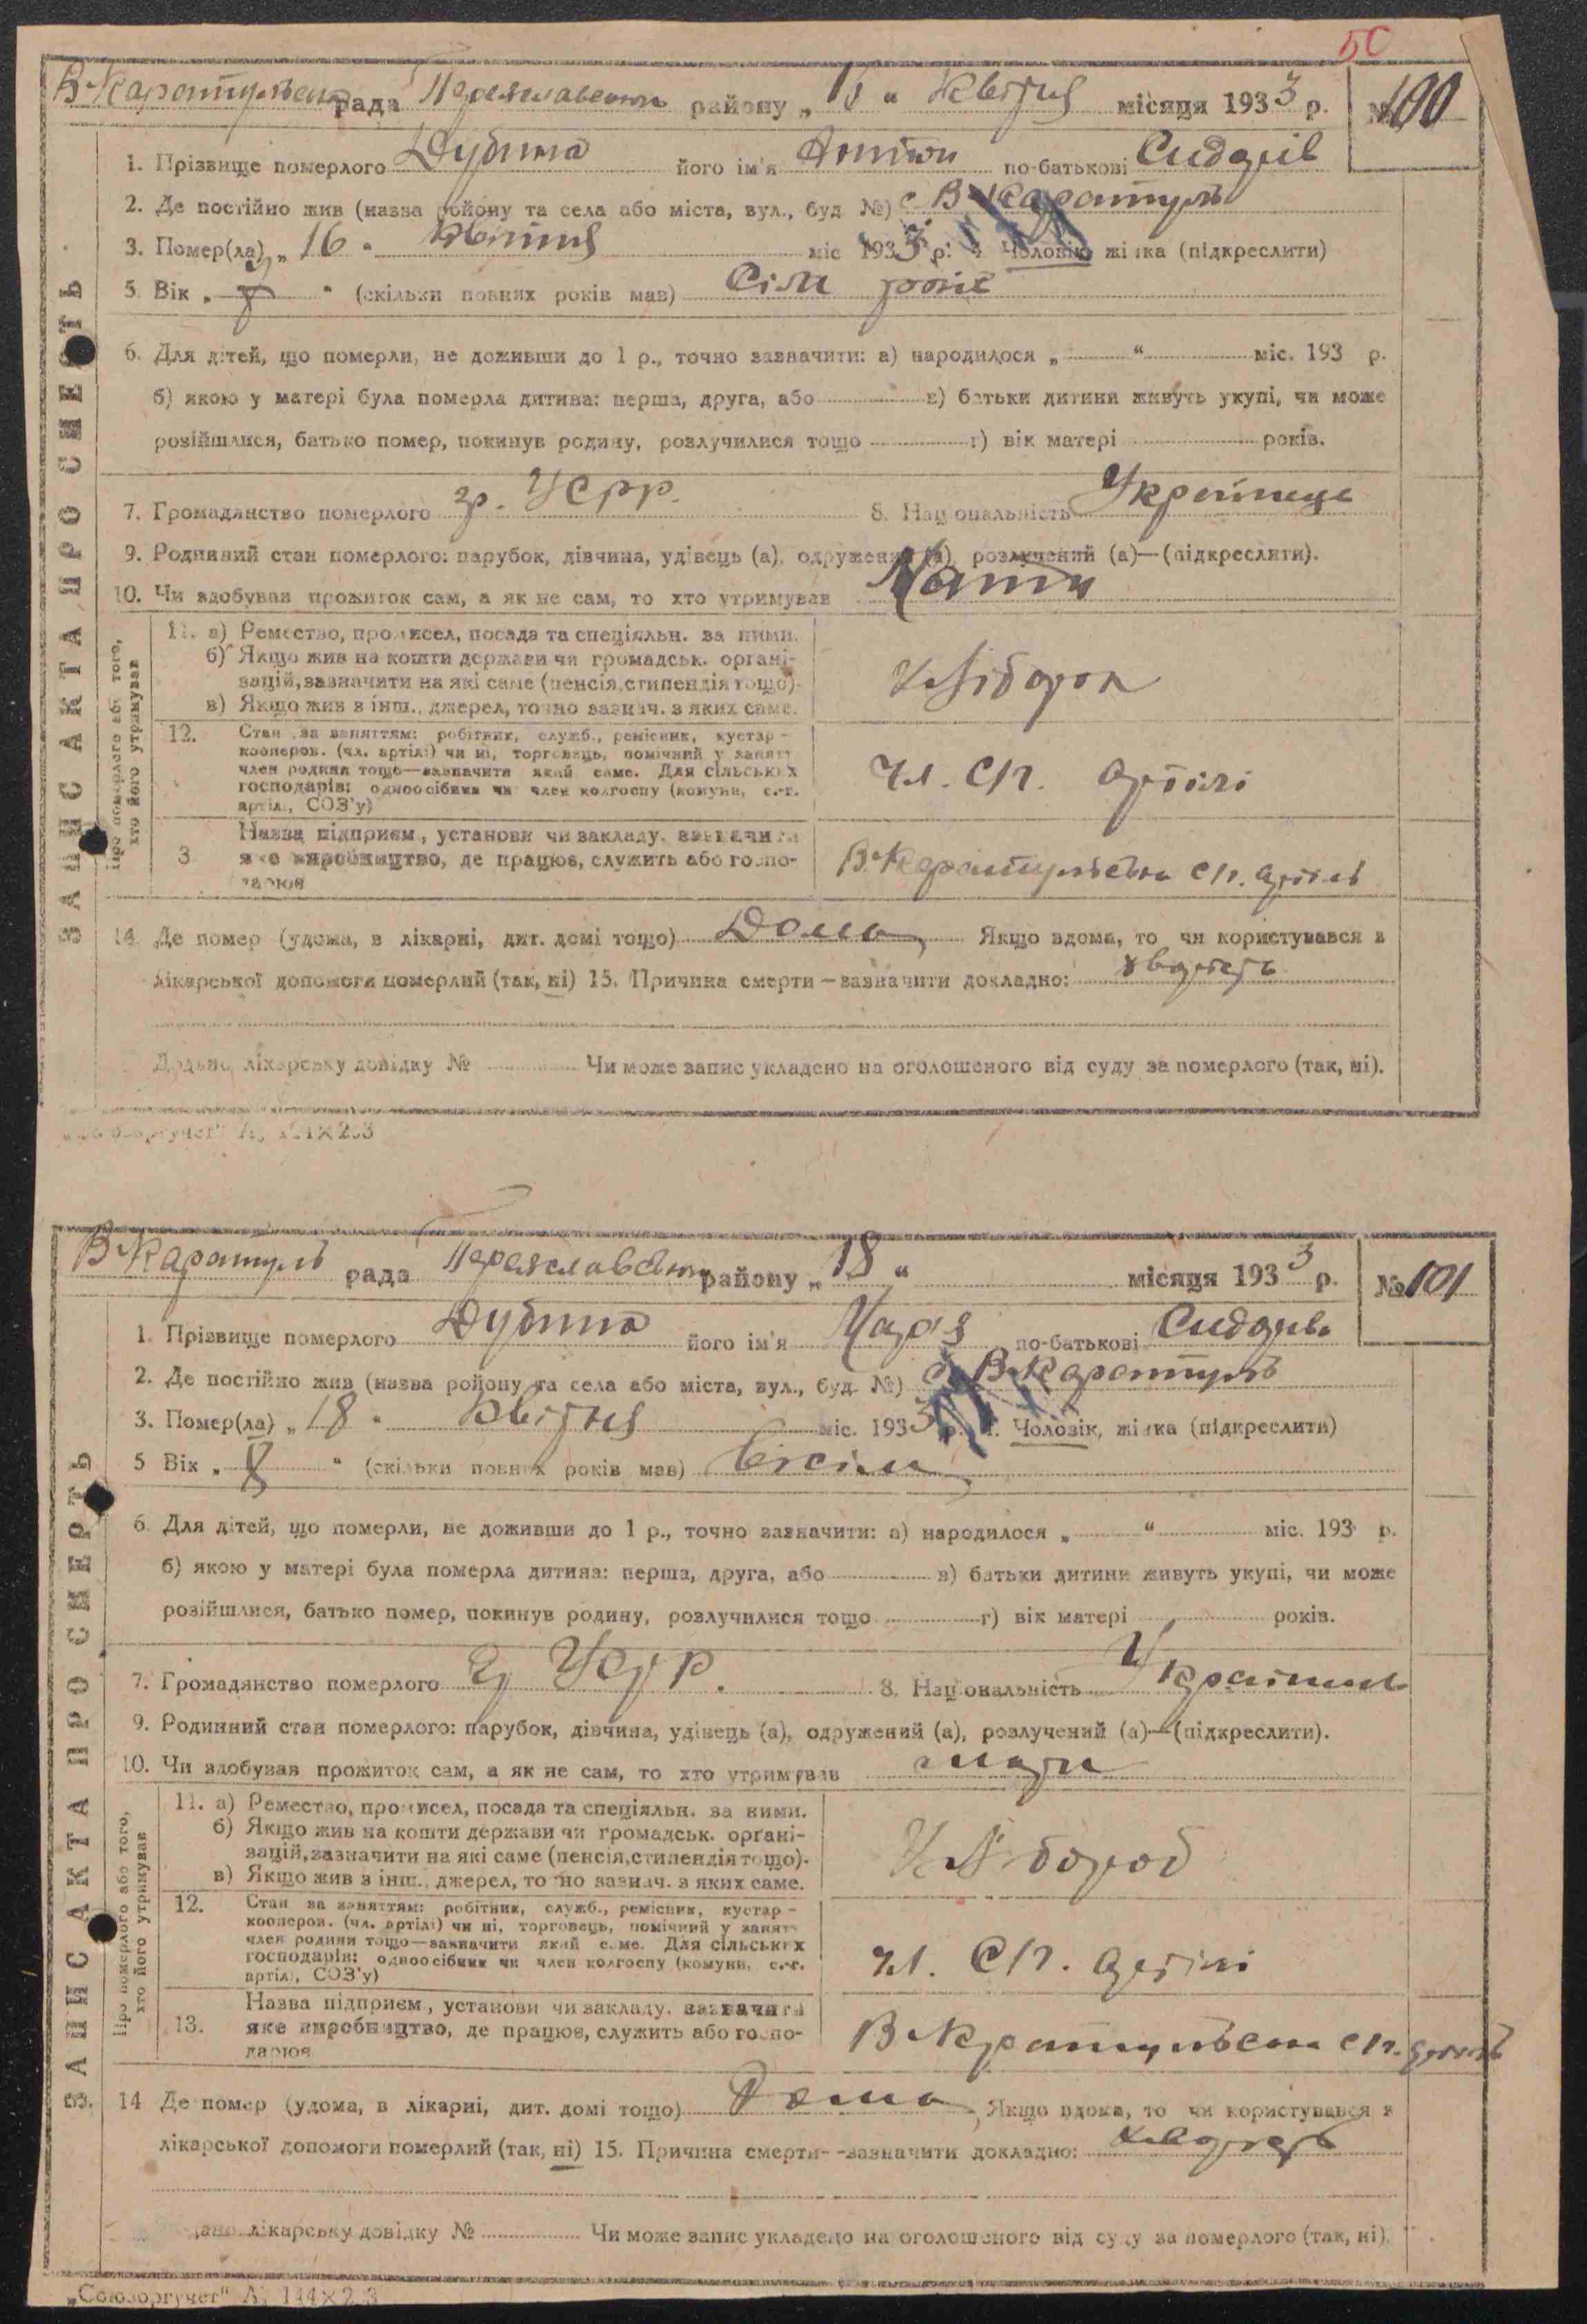 50
В-Каратульська рада Переяславського району „18“ Квітня місяця 1933 р. №100
1. Прізвище померлого Дубина його ім'я Антон по-батькові Сидорів
2. Де постійно жив (назва району та села або міста, вул., буд №) с В-Каратуль
3. Помер(ла) „16“ Квітня міс 1933 р. 4 Чоловік, жінка (підкреслити)
5 Вік „7“ (скільки повних років мав) Сім років
6. Для дітей, що померли, не доживши до 1 р., точно зазначити: а) народилося „ “ міс. 193 р.
б) якою у матері була померла дитина: перша, друга, або в) батьки дитини живуть укупі, чи може
розійшлися, батько помер, покинув родину, розлучилися тощо г) вік матері років.
7. Громадянство померлого гр. УСРР. 8. Національність Українець
9. Родинний стан померлого: парубок, дівчина, удівець (а), одружений (а), розлучений (а)—(підкреслити).
10. Чи здобував прожиток сам, а як не сам, то хто утримував Мати
ЗАПИС АКТА ПРО СМЕРТЬ
Про померлого або того, хто його утримував
11. а) Ремество, промисел, посада та спеціяльн. за ними.
б) Якщо жив на кошти держави чи громадськ. органі-
зацій, зазначити на які саме (пенсія, стипендія тощо).
в) Якщо жив з інш., джерел, точно зазнач. з яких саме.
Хлібороб
12. Стан за заняттям: робітник, служб., ремісник, кустар-
кооперов. (чл. артілі) чи ні, торговець, помічний у занятт
член родини тощо—зазначити який саме. Для сільських
господарів: одноосібник чи член колгоспу (комуни, с.-г.
артіл., СОЗ'у)
чл. СГ. артілі
3 Назва підприєм., установи чи закладу, зазначити
яке виробництво, де працює, служить або госпо-
дарює
В.Каратульська сг. артіль
14. Де помер (удома, в лікарні, дит. домі тощо) Дома Якщо вдома, то чи користувався з
лікарської допомоги померлий (так, ні) 15. Причина смерти—зазначити докладно:
Додано лікарську довідку № Чи може запис укладено на оголошеного від суду за померлого (так, ні).
В-Каратуль рада Переяславського району „18“ місяця 1933 р. №101
1. Прізвище померлого Дубина його ім'я по-батькові Сидорів
2. Де постійно жив (назва району та села або міста, вул., буд №) с. В-Каратуль
3. Помер(ла) „18“ Квітня міс. 1933 р. 4. Чоловік, жінка (підкреслити)
5 Вік „8“ (скільки повних років мав) Вісім
6. Для дітей, що померли, не доживши до 1 р., точно зазначити: а) народилося „ “ міс. 193 р.
б) якою у матері була померла дитина: перша, друга, або в) батьки дитини живуть укупі, чи може
розійшлися, батько помер, покинув родину, розлучилися тощо г) вік матері років.
7. Громадянство померлого гр УСРР. 8. Національність
9. Родинний стан померлого: парубок, дівчина, удівець (а), одружений (а), розлучений (а)—(підкреслити).
10. Чи здобував прожиток сам, а як не сам, то хто утримував мати
ЗАПИС АКТА ПРО СМЕРТЬ
Про померлого або того, хто його утримував
11. а) Ремество, промисел, посада та спеціяльн. за ними.
б) Якщо жив на кошти держави чи громадськ. органі-
зацій, зазначити на які саме (пенсія, стипендія тощо).
в) Якщо жив з інш., джерел, точно зазнач. з яких саме.
Хлібороб
12. Стан за заняттям: робітник, служб., ремісник, кустар-
кооперов. (чл. артілі) чи ні, торговець, помічний у занятт
член родини тощо—зазначити який саме. Для сільських
господарів: одноосібник чи член колгоспу (комуни, с.-г.
артіл., СОЗ'у)
чл. СГ. артілі
13. Назва підприєм., установи чи закладу, зазначити
яке виробництво, де працює, служить або госпо-
дарює
В Каратульська сг. артіль
14 Де помер (удома, в лікарні, дит. домі тощо) Дома Якщо вдома, то чи користувався з
лікарської допомоги померлий (так, ні) 15. Причина смерти—зазначити докладно:
лікарську довідку № Чи може запис укладено на оголошеного від суду за померлого (так, ні).
„Союзоргучет“